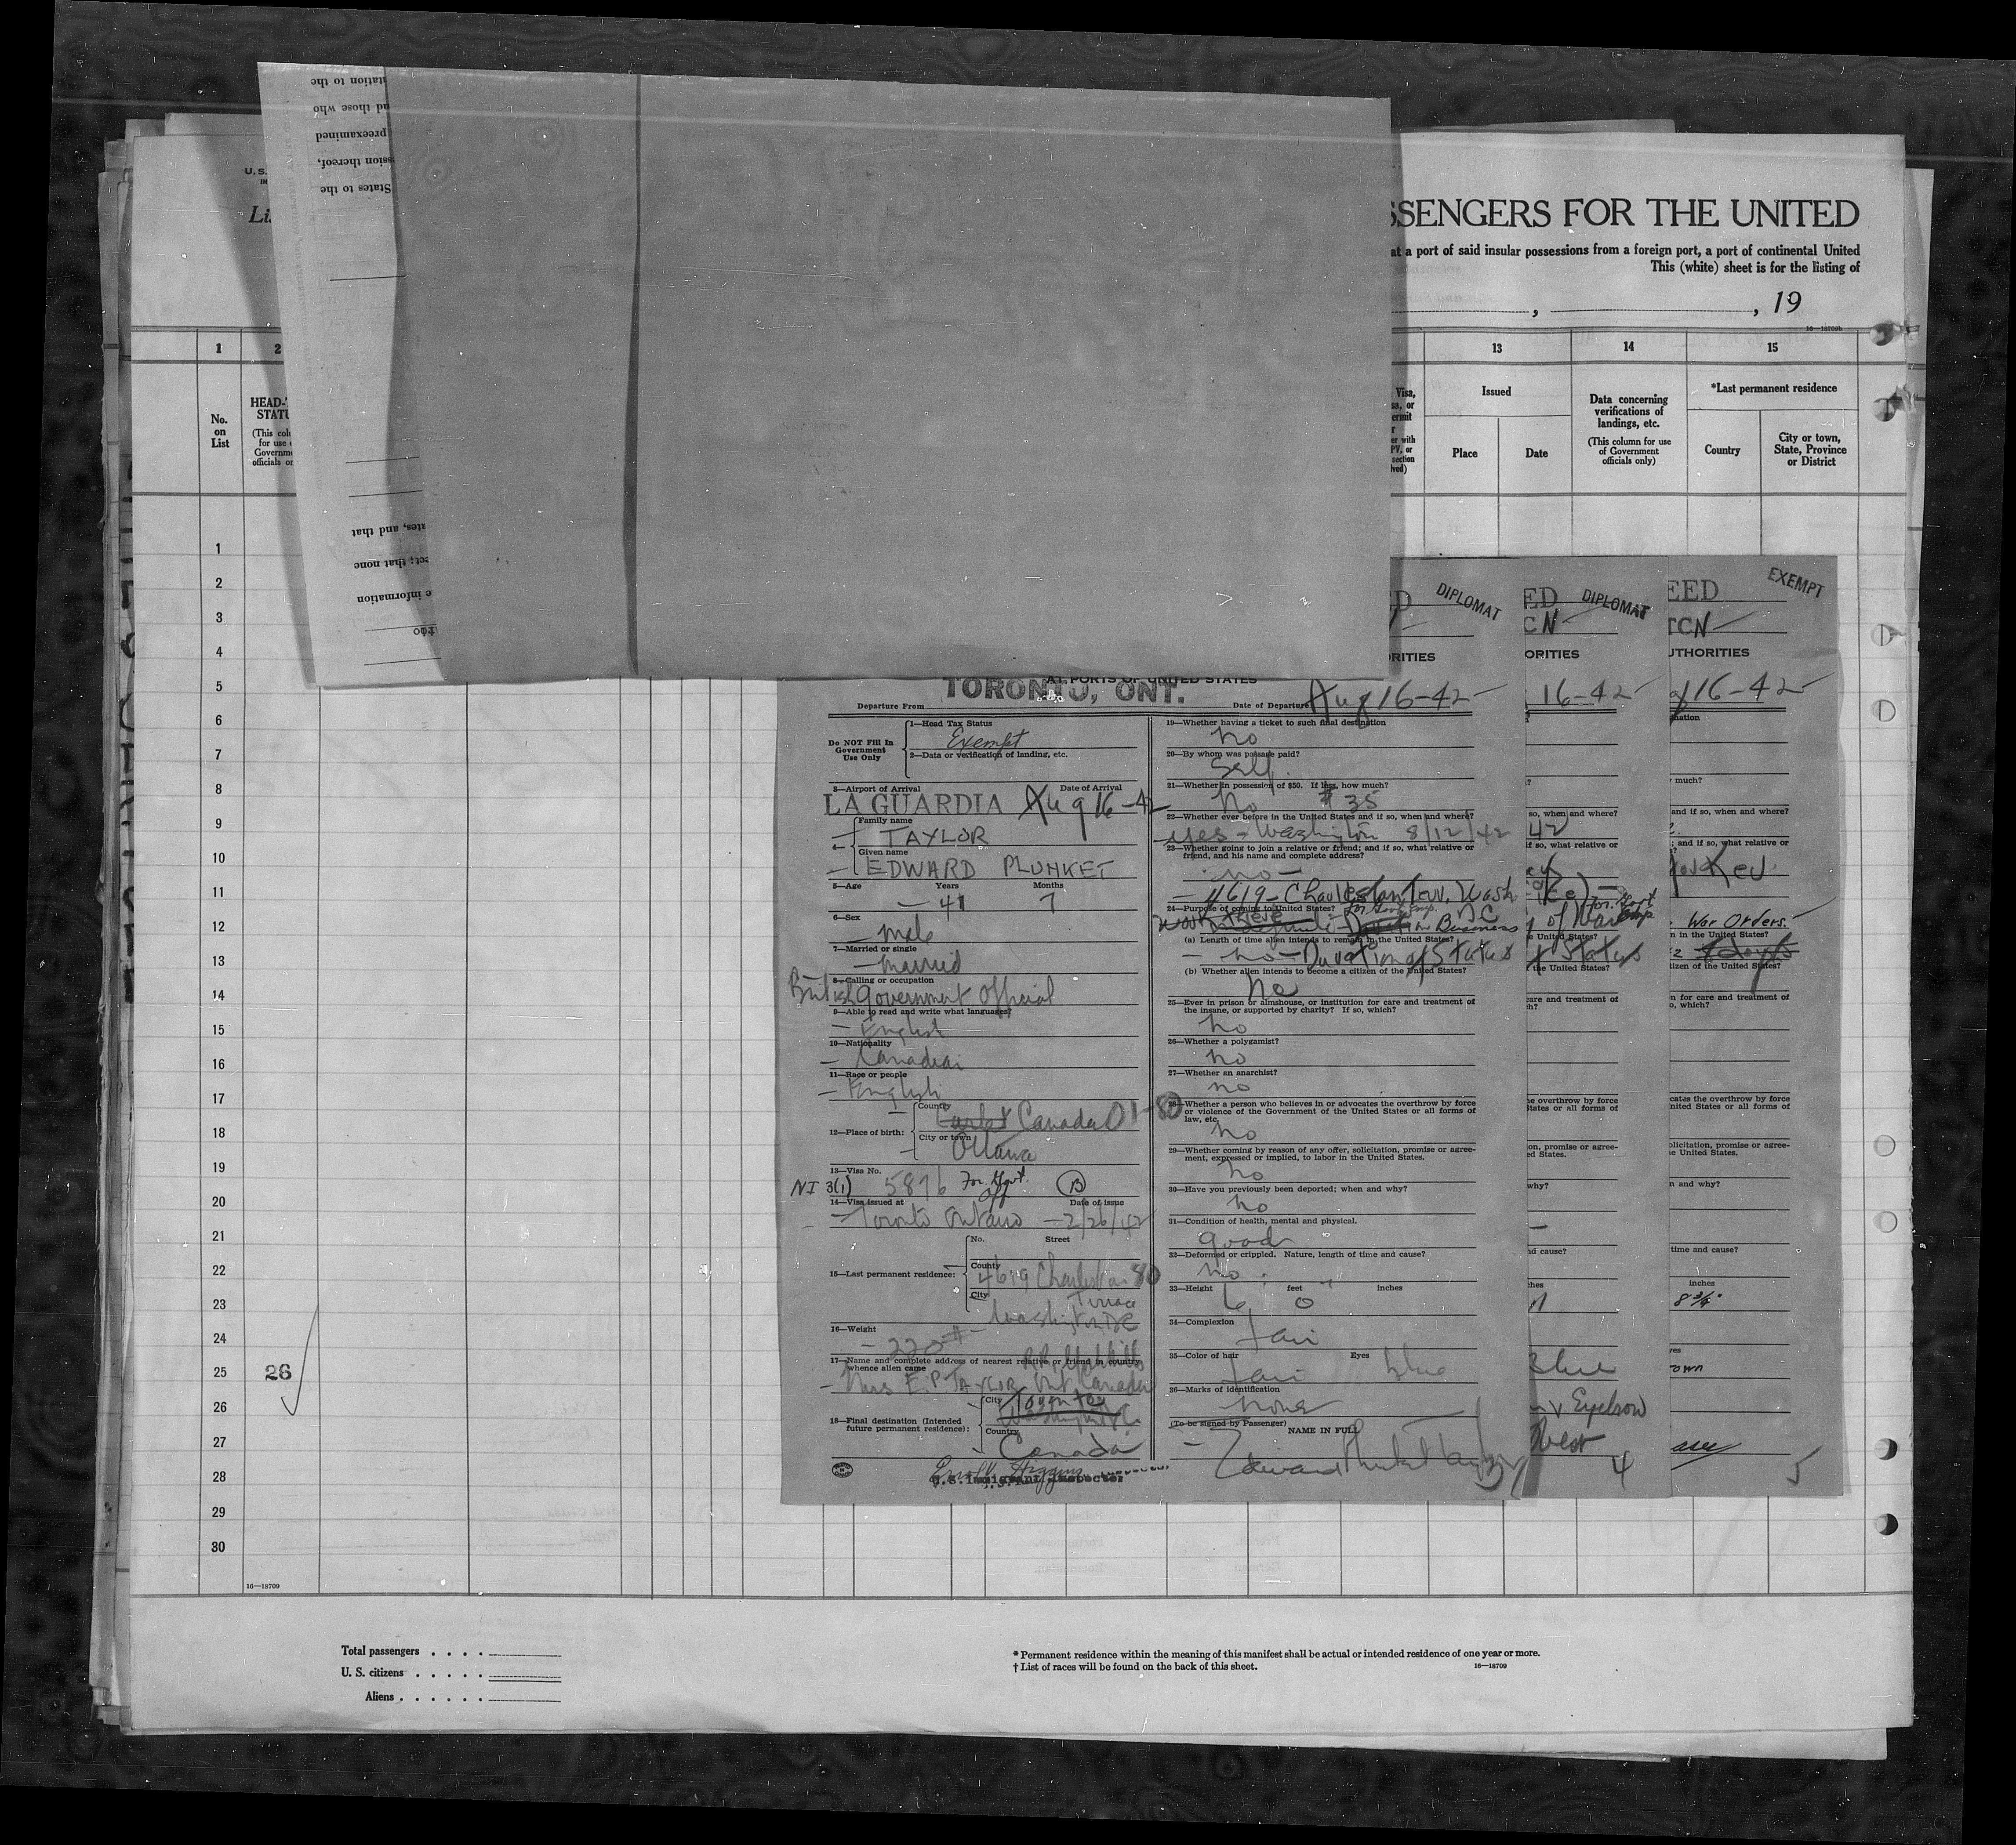 U.S.
Li
SSENGERS FOR THE UNITED
at a port of said insular possessions from a foreign port, a port of continental United
This (white) sheet is for the listing of
, , 19
16—18709b
tation to the
nd those who
preexamined
ssion thereof,
States to the
ates, and that
ect; that none
e information
1 2 13 14 15
No. on List
HEAD-
STATU
(This col
for use
Governme
officials on
Visa,
Issued
Place Date
Data concerning verifications of landings, etc.
(This column for use of Government officials only)
*Last permanent residence
Country
City or town, State, Province or District
1
2
3
4
5
6
7
8
9
10
11
12
13
14
15
16
17
18
19
20
21
22
23
24
25
26
27
28
29
30
26
16—18709
DIPLOMAT
ED DIPLOMAT
CN
EED EXEMPT
TCN
ORITIES
ORITIES
UTHORITIES
AT PORTS OF UNITED STATES
Departure From TORONTO, ONT. Date of Departure Aug 16-42
16-42
16-42
Do NOT Fill In Government Use Only
1—Head Tax Status
Exempt
2—Data or verification of landing, etc.
3—Airport of Arrival Date of Arrival
LA GUARDIA Aug 16-42
4— Family name
TAYLOR
Given name
EDWARD PLUNKET
5—Age Years Months
41 7
6—Sex
Male
7—Married or single
Married
8—Calling or occupation
British Government Official
9—Able to read and write what languages?
English
10—Nationality
Canadian
11—Race or people
English
12—Place of birth: Country
Canada 01-80
City or town
Ottawa
13—Visa No.
NI 3(1) 5876 For. Govt. Off B
14—Visa issued at Date of issue
Toronto Ontario 2/26/42
15—Last permanent residence: No. Street
County
4619 Charleston 80
Terrace
City
Washington DC
16—Weight
220#
17—Name and complete address of nearest relative or friend in country whence alien came
Mrs E.P. TAYLOR Ont Canada
18—Final destination (Intended future permanent residence): City
Toronto
Country
Canada
U.S. Immigrant Inspector
19—Whether having a ticket to such final destination
no
20—By whom was passage paid?
Self
21—Whether in possession of $50. If less, how much?
no $35
22—Whether ever before in the United States and if so, when and where?
yes - Washington 8/12/42
23—Whether going to join a relative or friend; and if so, what relative or friend, and his name and complete address?
no -
4619 - Charleston Terr. Wash
D C
24—Purpose of coming to United States?
For. Govt. Emp.
Business
(a) Length of time alien intends to remain in the United States?
no - Duration of Status
(b) Whether alien intends to become a citizen of the United States?
no
25—Ever in prison or almshouse, or institution for care and treatment of the insane, or supported by charity? If so, which?
no
26—Whether a polygamist?
no
27—Whether an anarchist?
no
28—Whether a person who believes in or advocates the overthrow by force or violence of the Government of the United States or all forms of law, etc.
no
29—Whether coming by reason of any offer, solicitation, promise or agreement, expressed or implied, to labor in the United States.
no
30—Have you previously been deported; when and why?
no
31—Condition of health, mental and physical.
good
32—Deformed or crippled. Nature, length of time and cause?
no
33—Height feet inches
6 0
34—Complexion
fair
35—Color of hair Eyes
fair blue
36—Marks of identification
none
(To be signed by Passenger) NAME IN FULL
Edward Plunket Taylor
3
42
For. Govt. Emp.
of Status
Blue
Eyebrow
West
4
War Orders.
8 3/4"
own
5
Total passengers
U. S. citizens
Aliens
* Permanent residence within the meaning of this manifest shall be actual or intended residence of one year or more.
† List of races will be found on the back of this sheet. 16—18709